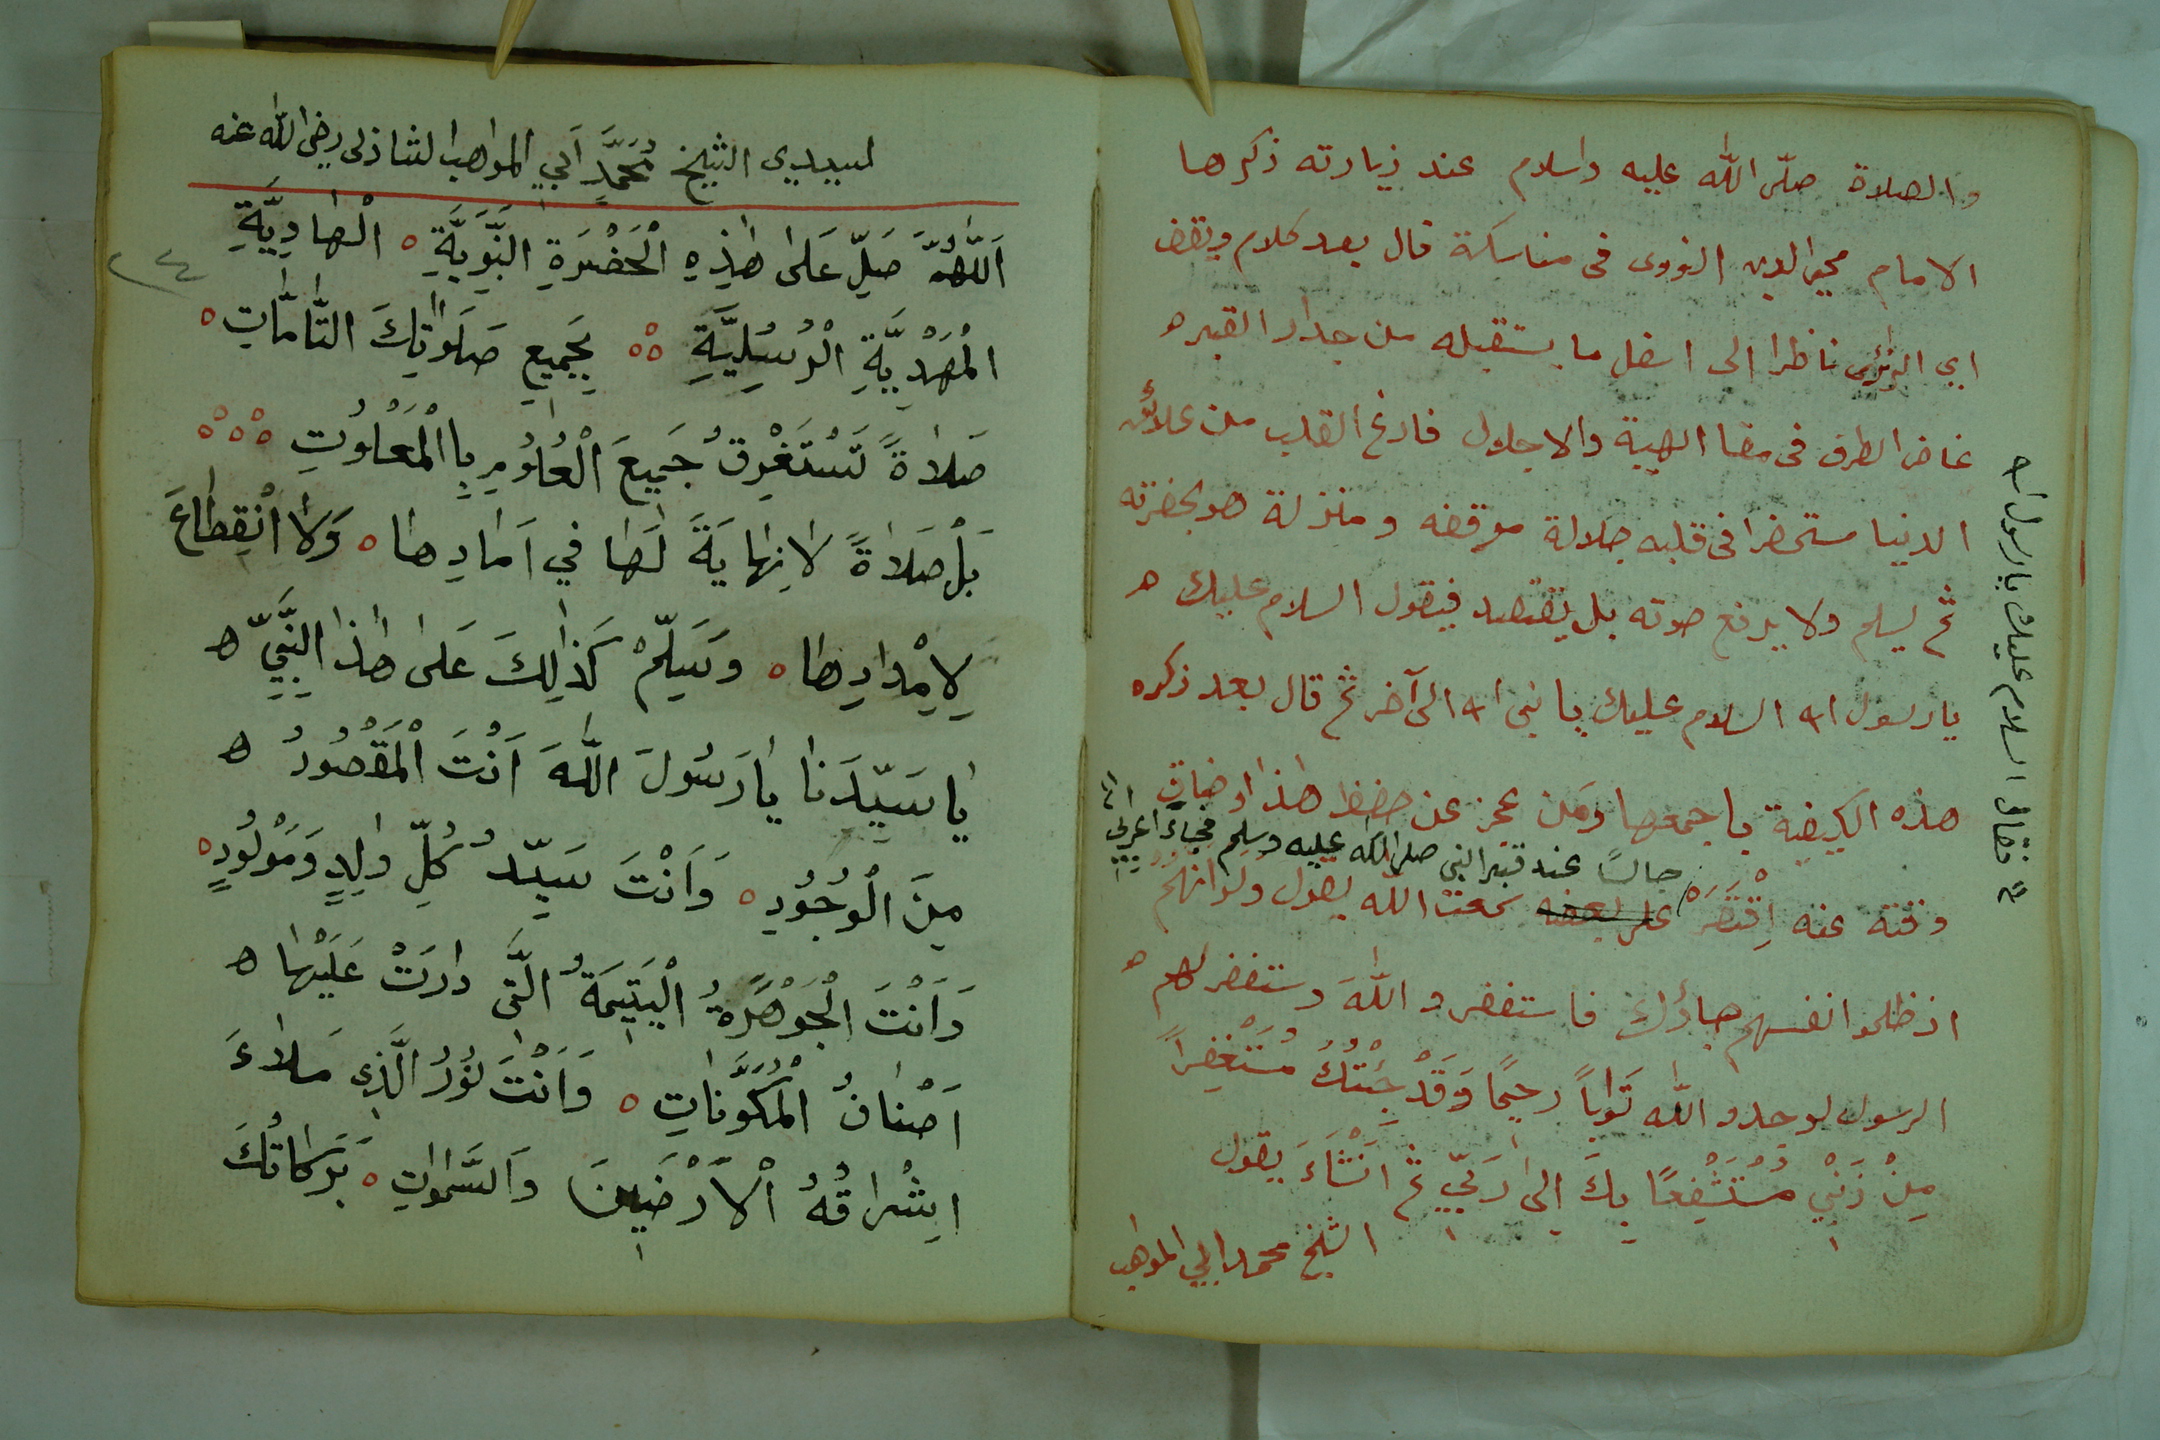 والصلاة صلّى اللّٰه عليه واسلام عند زيارته ذكرها
الامام محي الدين النووى فى مناسكة قال بعد كلام ويقف
اي الزائر ناظرا الى اسفل ما يستقبله من جدار القبر ه
غاض الطرف فى مقا الهيبة والاجلال فارغ القلب من علائق
الدنيا مستحضرا فى قلبه جلالة موقفه ومنزلة هو بحضرته
ثم يسلم ولا يرفع صوته بل يقتصد فيقول السلام عليك ه
يا رسول الله السلام عليك يا نبي الله الى آخر ثم قال بعد ذكره
هذه الكيفية باجمعها ومَن عجز عن حفظ هٰذا او ضاق
جالسًا عند قبر النبي صلى اللّٰه عليه وسلم فجاءَ اعرابي
وقتة عنه اِقْتَصَرَ على بعضه سمعت اللّٰه يقول وَلَوْ اَنَّهُمْ
اذ ظلموا انفسهم جاؤك فاستغفرو اللّٰهَ وستغفر لهم ه
الرسول لوجدو اللّٰه تَوّاباً رحيمًا وَقَدْ جِئْتُكَ مُسْتَغْفِراً
مِنْ ذَنْبِي مُسْتَشْفِعًا بِكَ اِلٰى رَبّي ثم انْشَاءَ يقول
الشيخ محمد ابي المواهب
فقال السلام عليك يا رسول الله
لسيدي الشيخ مُحَمَّدٍ اَبِي المواهب الشاذلى رضى اللّٰه عنه
اَللّٰهُمَّ صَلِّ عَلٰى هٰذِهِ الْحَضْرَةِ النَّبَوِيَّةِ ه الْهادِيَّةِ
الْمَهْدِيَّةِ الرُسُلِيَّةِ بِجَمِيعِ صَلَوٰاتِكَ التّٰامّٰاتِ ه
صَلاٰةً تَسْتَغْرِقُ جَمِيعَ الْعُلُومِ بِاالْمَعْلُوتِ
بَلْ صَلاٰةً لاٰنِهٰايَةَ لَهٰا فِي اَمٰادِهٰا ه وَلاٰ اَنْقِطٰاعَ
لِاِمْدٰادِهٰا ه وَسَلِّمْ كَذٰلِكَ عَلٰى هٰذَا النَّبِيِّ ه
يٰا سَيِّدَنٰا يٰا رَسُولَ اللّٰهَ اَنْتَ الْمَقْصُودُ ه
مِنَ الْوُجُودِ ه وَاَنْتَ سَيِّدُ كُلِّ وٰالِدٍ وَمَوْلُودٍ ه
وَاَنْتَ الْجَوْهَرَةُ الْيَتِيمَةُ الَّتى دٰارَتْ عَلَيْهٰا ه
اَصْنٰافُ الْمُكَوَّنٰاتِ ه وَاَنْتَ نُوْرُ الَّذِي مَلاٰءَ
اِشْرٰاقُهُ اْلاَرْضَينَ وَالسَّمٰوٰتِ ه بَرَكٰاتُكَ